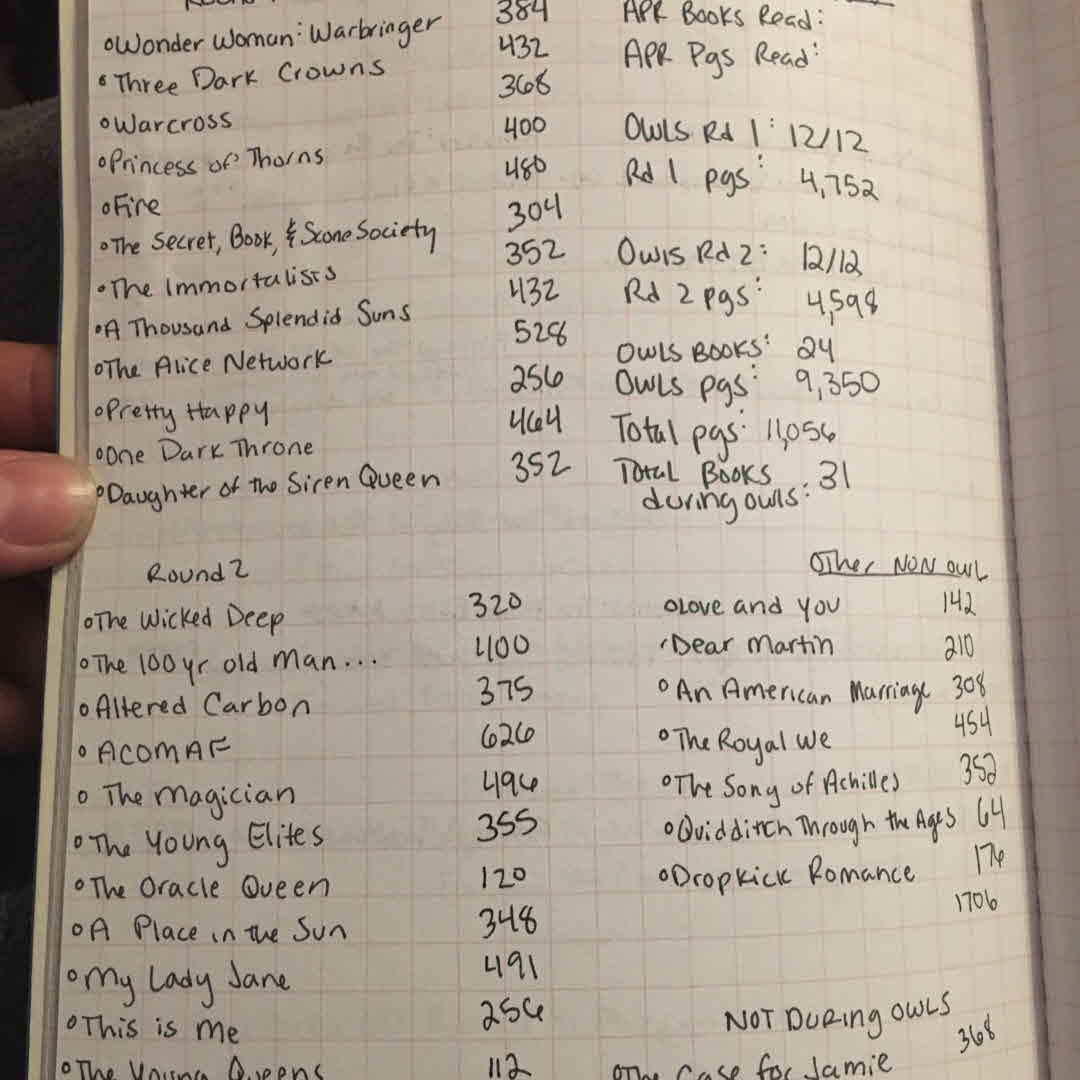 Wonder Woman: Warbringer 384
Three Dark Crowns 432
Warcross 368
Princess of Thorns 400
Fire 480
The Secret, Book, & Scone Society 304
The Immortalists 352
A Thousand Splendid Suns 432
The Alice Network 528
Pretty Happy 256
One Dark Throne 464
Daughter of the Siren Queen 352
APR Books Read:
APR Pgs Read:
OWLS Rd 1: 12/12
Rd 1 pgs: 4,752
Owls Rd 2: 12/12
Rd 2 pgs: 4,598
OWLS BOOKS: 24
OWLS pgs: 9,350
Total pgs: 11,056
Total Books
during owls: 31
Round 2
The Wicked Deep 320
The 100 yr old man... 400
Altered Carbon 375
ACOMAF 626
The Magician 496
The Young Elites 355
The Oracle Queen 120
A Place in the Sun 348
My Lady Jane 491
This is Me 256
The Young Queens 112
Other NON OWL
Love and You 142
Dear Martin 210
An American Marriage 308
The Royal We 454
The Song of Achilles 352
Quidditch Through the Ages 64
Dropkick Romance 176
1706
NOT DURING OWLS
The Case for Jamie 368